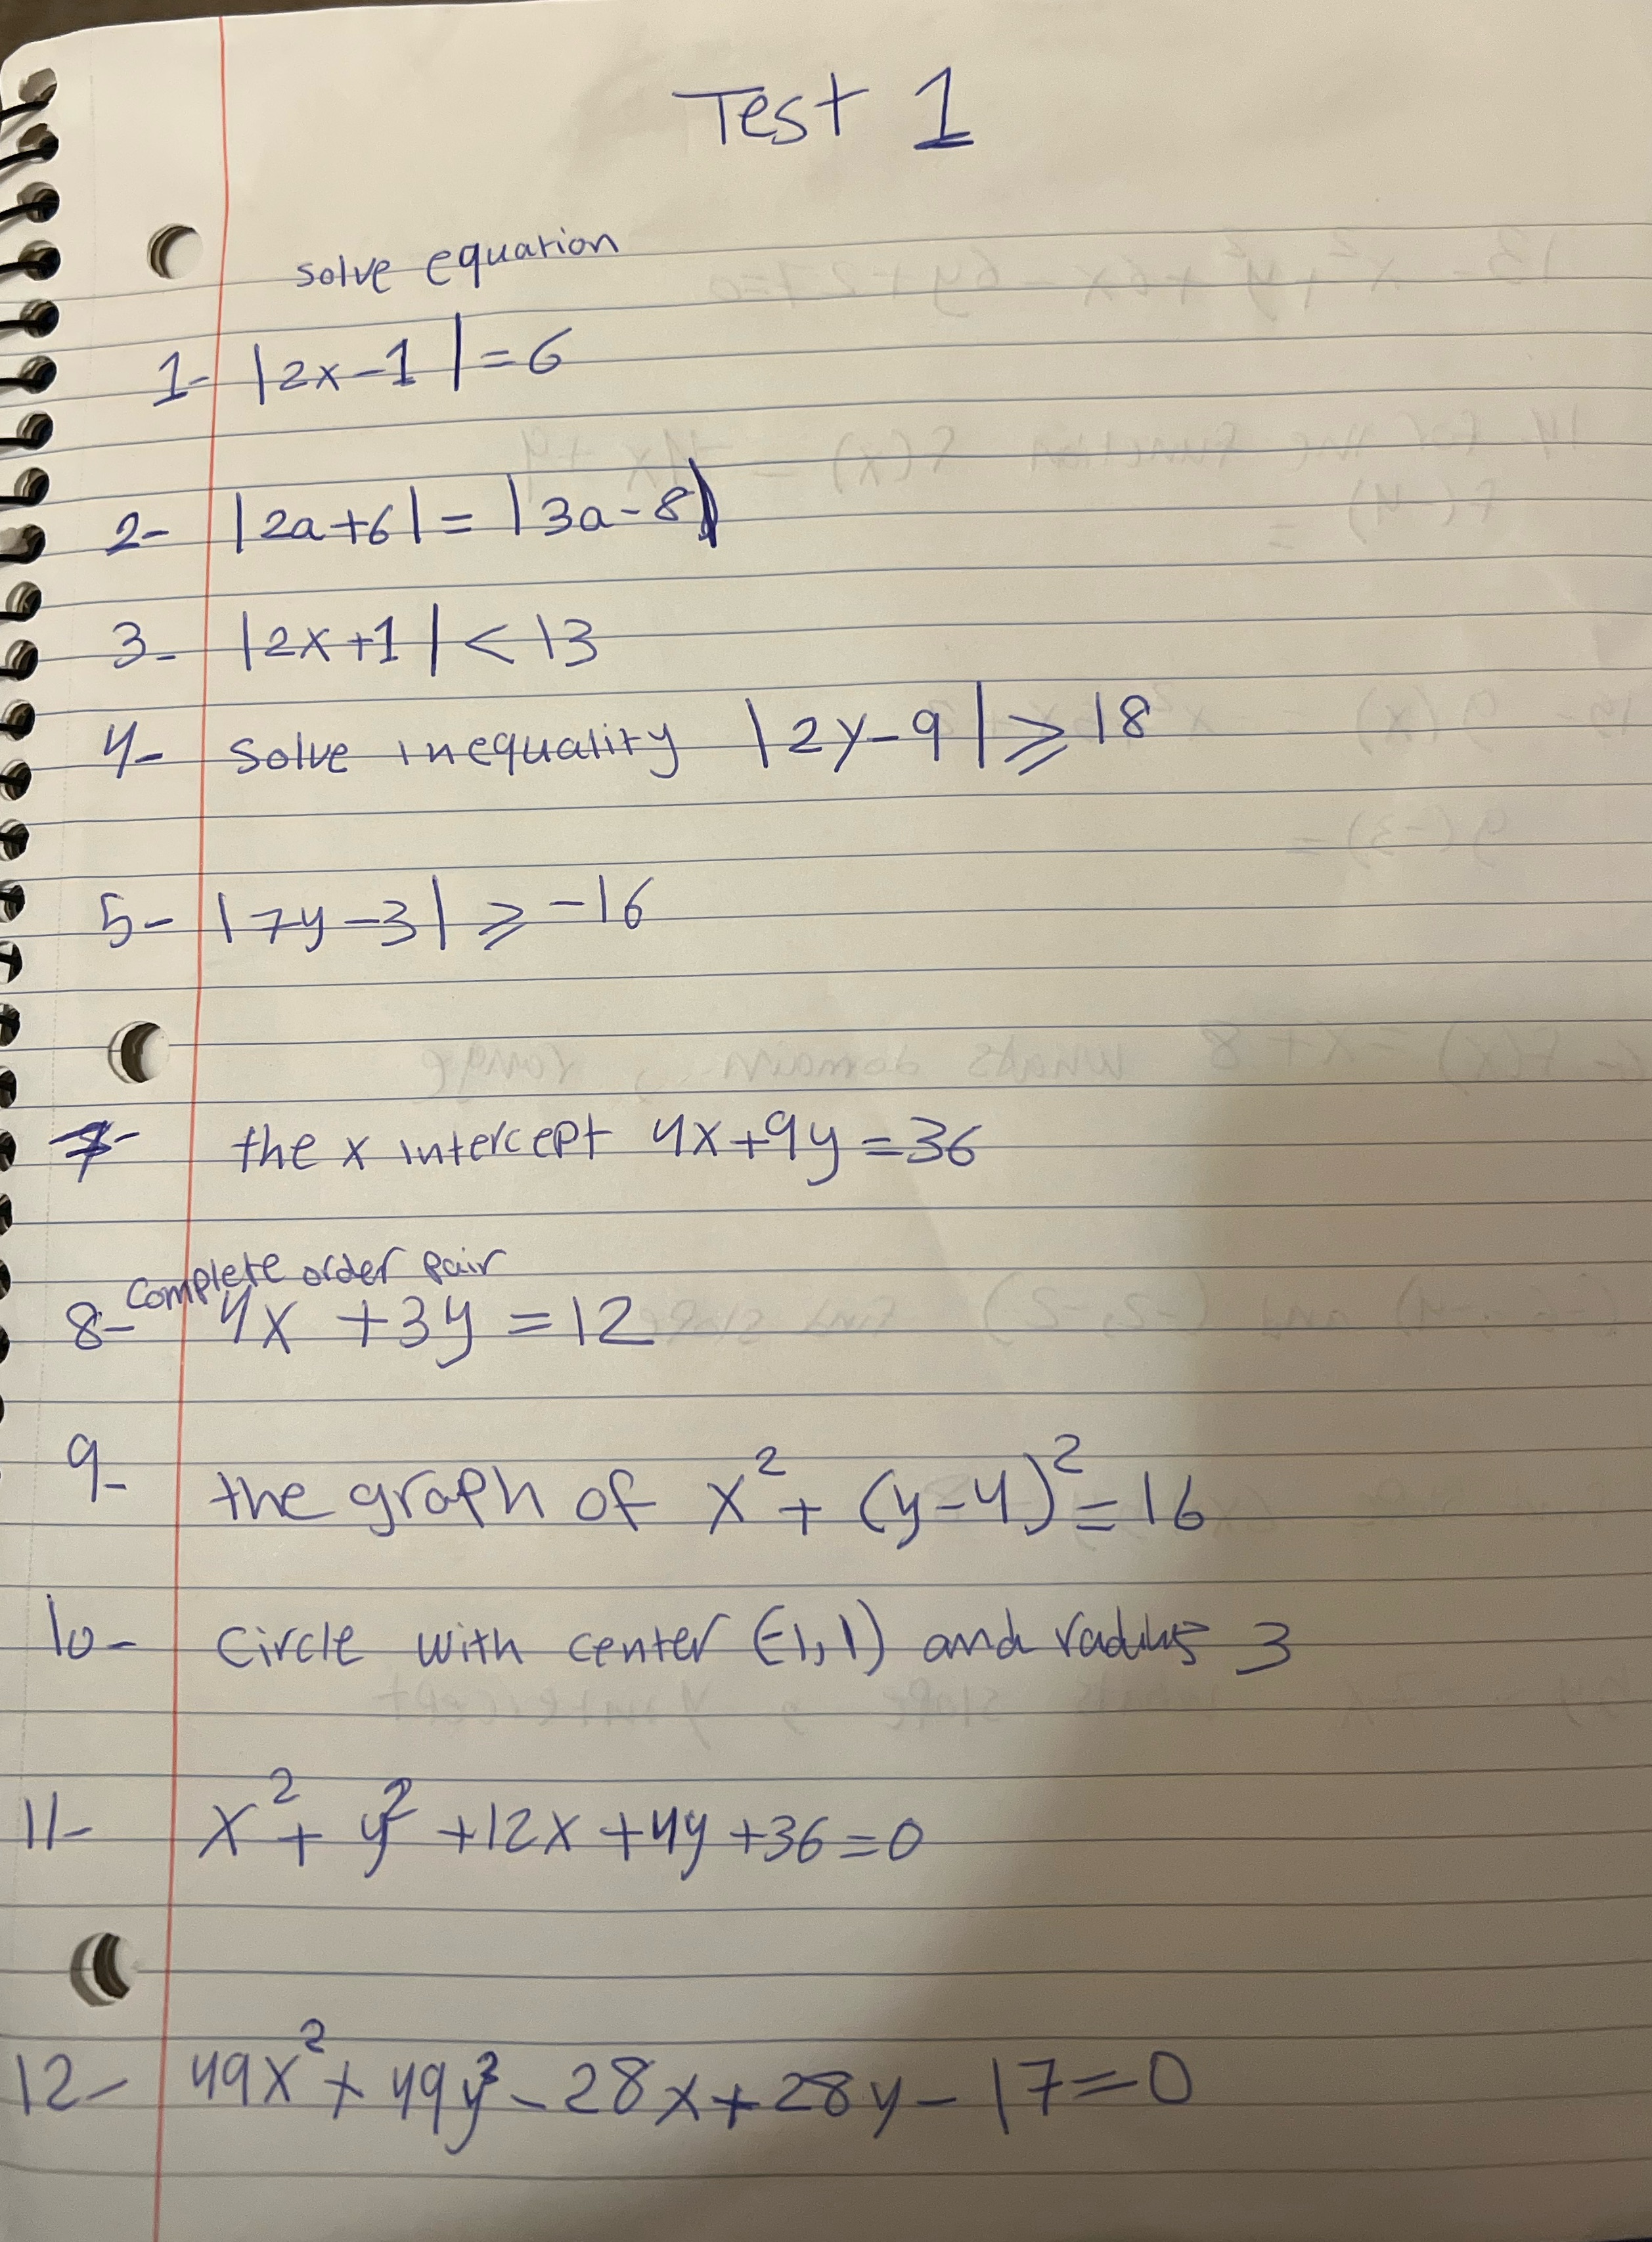 Test 1
solve equation
1- |2x-1|=6
2- |2a+6|=|3a-8|
3- |2x+1|<13
4- solve inequality |2y-9|⩾18
5- |7y-3|⩾-16
7- the x intercept 4x+9y=36
complete order pair
8- 4x+3y=12
9- the graph of x²+(y-4)²=16
10- circle with center (-1,1) and radius 3
11- x²+y²+12x+4y+36=0
12- 49x²+49y²-28x+28y-17=0